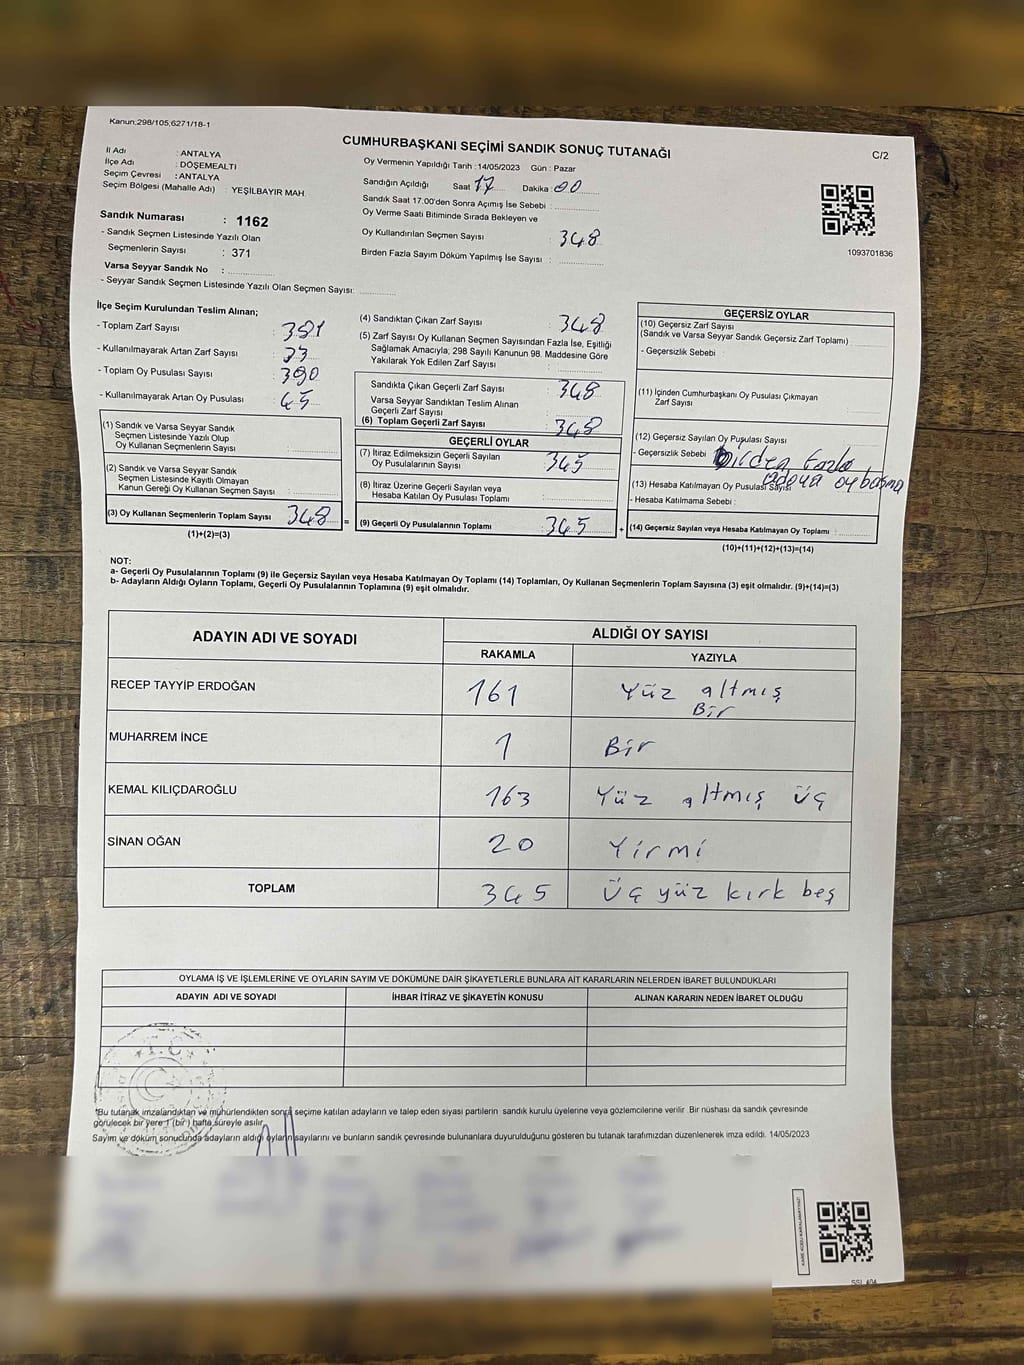 Kanun:298/105,6271/18-1
CUMHURBAŞKANI SEÇİMİ SANDIK SONUÇ TUTANAĞI
C/2
İl Adı : ANTALYA
İlçe Adı : DÖŞEMEALTI
Seçim Çevresi : ANTALYA
Seçim Bölgesi (Mahalle Adı) : YEŞİLBAYIR MAH.
Sandık Numarası : 1162
- Sandık Seçmen Listesinde Yazılı Olan
Seçmenlerin Sayısı : 371
Varsa Seyyar Sandık No :
- Seyyar Sandık Seçmen Listesinde Yazılı Olan Seçmen Sayısı:
Oy Vermenin Yapıldığı Tarih :14/05/2023 Gün : Pazar
Sandığın Açıldığı Saat 17 Dakika 00
Sandık Saat 17.00'den Sonra Açımış İse Sebebi :
Oy Verme Saati Bitiminde Sırada Bekleyen ve
Oy Kullandırılan Seçmen Sayısı : 348
Birden Fazla Sayım Döküm Yapılmış İse Sayısı :
1093701836
İlçe Seçim Kurulundan Teslim Alınan;
- Toplam Zarf Sayısı : 381
- Kullanılmayarak Artan Zarf Sayısı : 33
- Toplam Oy Pusulası Sayısı : 390
- Kullanılmayarak Artan Oy Pusulası : 45
(1) Sandık ve Varsa Seyyar Sandık
Seçmen Listesinde Yazılı Olup
Oy Kullanan Seçmenlerin Sayısı :
(2) Sandık ve Varsa Seyyar Sandık
Seçmen Listesinde Kayıtlı Olmayan
Kanun Gereği Oy Kullanan Seçmen Sayısı :
(3) Oy Kullanan Seçmenlerin Toplam Sayısı : 348
(1)+(2)=(3)
(4) Sandıktan Çıkan Zarf Sayısı : 348
(5) Zarf Sayısı Oy Kullanan Seçmen Sayısından Fazla İse, Eşitliği
Sağlamak Amacıyla, 298 Sayılı Kanunun 98. Maddesine Göre
Yakılarak Yok Edilen Zarf Sayısı :
Sandıkta Çıkan Geçerli Zarf Sayısı : 348
Varsa Seyyar Sandıktan Teslim Alınan
Geçerli Zarf Sayısı :
(6) Toplam Geçerli Zarf Sayısı : 348
GEÇERLİ OYLAR
(7) İtiraz Edilmeksizin Geçerli Sayılan
Oy Pusulalarının Sayısı : 345
(8) İtiraz Üzerine Geçerli Sayılan veya
Hesaba Katılan Oy Pusulası Toplamı :
= (9) Geçerli Oy Pusulalarının Toplamı : 345 +
GEÇERSİZ OYLAR
(10) Geçersiz Zarf Sayısı
(Sandık ve Varsa Seyyar Sandık Geçersiz Zarf Toplamı)
- Geçersizlik Sebebi :
(11) İçinden Cumhurbaşkanı Oy Pusulası Çıkmayan
Zarf Sayısı :
(12) Geçersiz Sayılan Oy Pusulası Sayısı :
- Geçersizlik Sebebi birden fazla
adaya oy basma
(13) Hesaba Katılmayan Oy Pusulası Sayısı
- Hesaba Katılmama Sebebi :
(14) Geçersiz Sayılan veya Hesaba Katılmayan Oy Toplamı :
(10)+(11)+(12)+(13)=(14)
NOT:
a- Geçerli Oy Pusulalarının Toplamı (9) ile Geçersiz Sayılan veya Hesaba Katılmayan Oy Toplamı (14) Toplamları, Oy Kullanan Seçmenlerin Toplam Sayısına (3) eşit olmalıdır. (9)+(14)=(3)
b- Adayların Aldığı Oyların Toplamı, Geçerli Oy Pusulalarının Toplamına (9) eşit olmalıdır.
ADAYIN ADI VE SOYADI ALDIĞI OY SAYISI
RAKAMLA YAZIYLA
RECEP TAYYİP ERDOĞAN 161 Yüz altmış
Bir
MUHARREM İNCE 1 Bir
KEMAL KILIÇDAROĞLU 163 Yüz altmış üç
SİNAN OĞAN 20 Yirmi
TOPLAM 345 Üç yüz kırk beş
OYLAMA İŞ VE İŞLEMLERİNE VE OYLARIN SAYIM VE DÖKÜMÜNE DAİR ŞİKAYETLERLE BUNLARA AİT KARARLARIN NELERDEN İBARET BULUNDUKLARI
ADAYIN ADI VE SOYADI İHBAR İTİRAZ VE ŞİKAYETİN KONUSU ALINAN KARARIN NEDEN İBARET OLDUĞU
T.C.
*Bu tutanak imzalandıktan ve mühürlendikten sonra seçime katılan adayların ve talep eden siyasi partilerin sandık kurulu üyelerine veya gözlemcilerine verilir. Bir nüshası da sandık çevresinde
görülecek bir yere 1 (bir) hafta süreyle asılır.
Sayım ve döküm sonucunda adayların aldığı oyların sayılarını ve bunların sandık çevresinde bulunanlara duyurulduğunu gösteren bu tutanak tarafımızdan düzenlenerek imza edildi. 14/05/2023